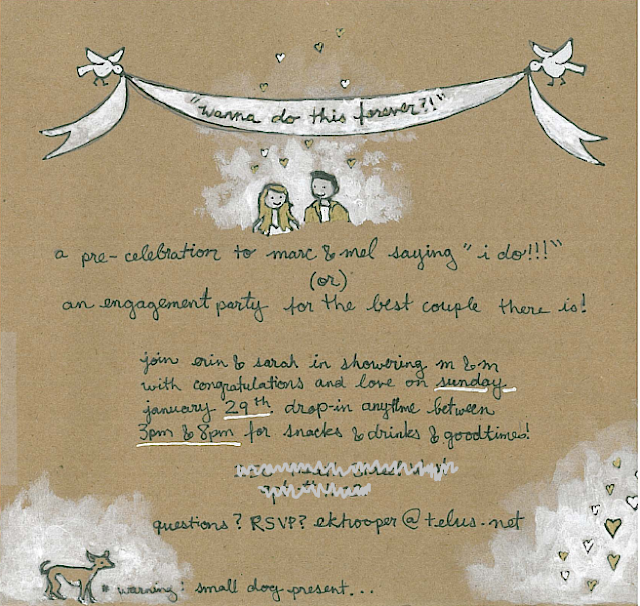 "wanna do this forever?!"
a pre-celebration to marc & mel saying "i do!!!"
(or)
an engagement party for the best couple there is!
join erin & sarah in showering m & m
with congratulations and love on sunday
january 29th. drop-in anytime between
3pm & 8pm for snacks & drinks & goodtimes!
questions? RSVP? ekhooper@telus.net
* warning: small dog present...